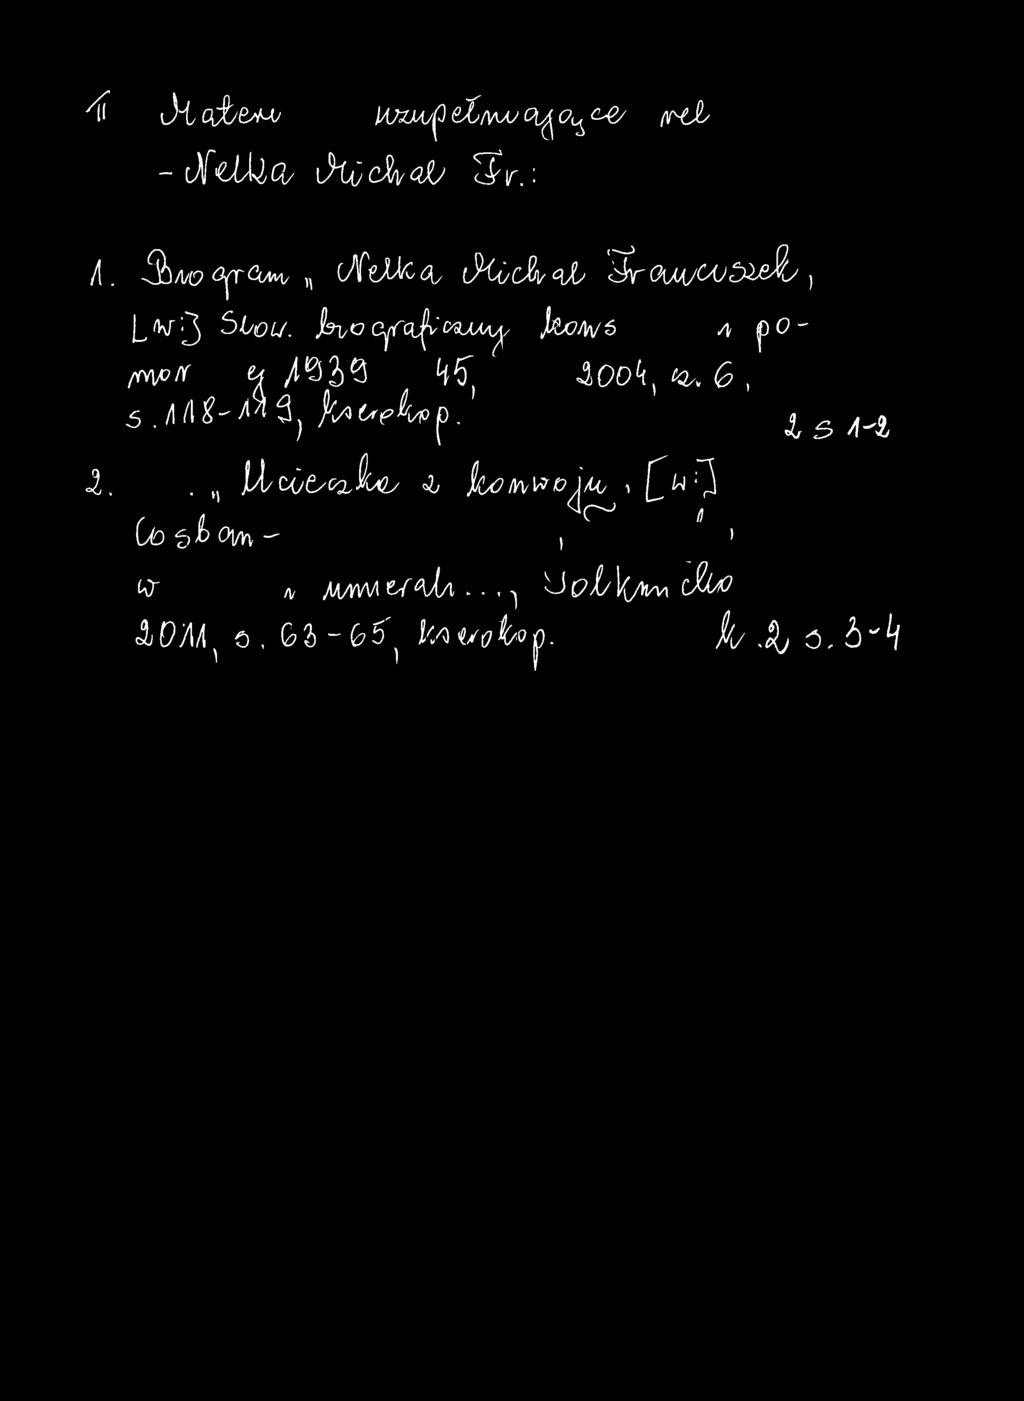 II Mater uzupełniające rel
- Nelka Michał Fr.:
1. Biogram „ Nelka Michał Franciszek,
[w:] Słow. biograficzny kons i po-
mor ej 1939 45, 2004, cz. 6,
s. 118-119, kserokop.
2 s 1-2
2. . „ Ucieczka z konwoju, [w:]
Cosban-
w i umierali..., Tolkmicko
2011, s. 63-65, kserokop. k. 2 s. 3-4